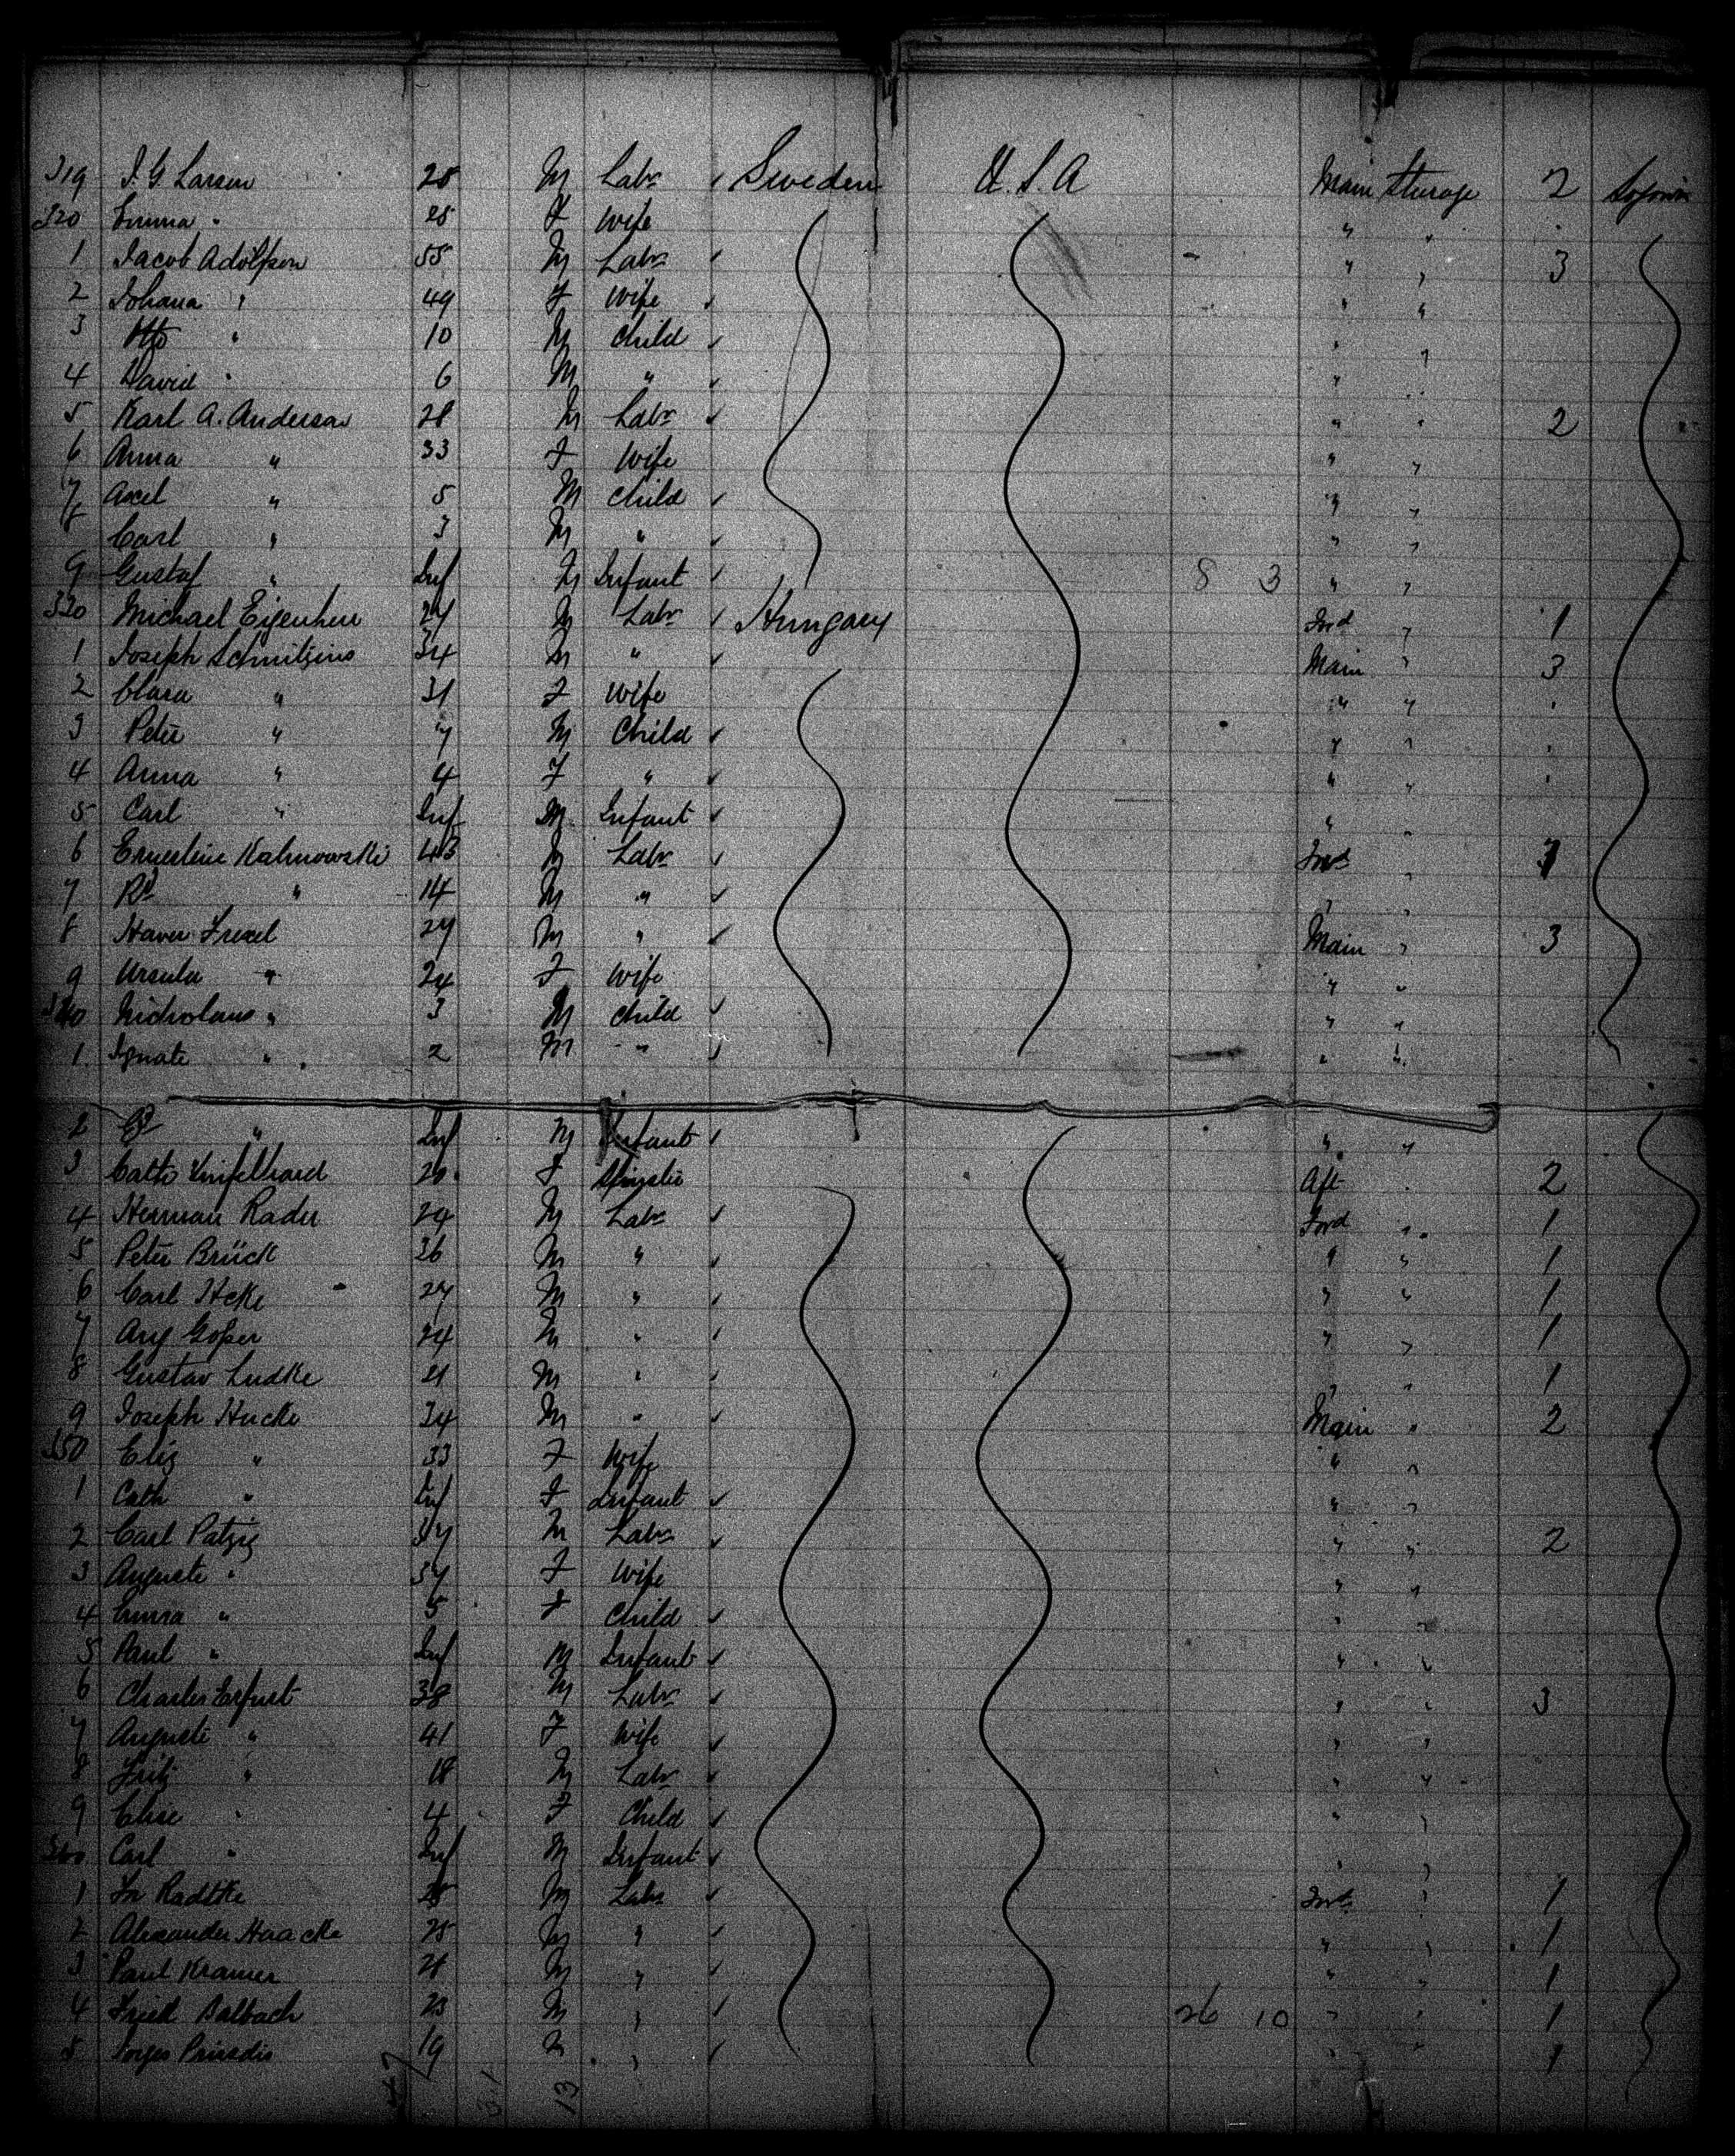 319 J. G. Larsen 28 M Labr Sweden U.S.A Main Sterage 2
320 Emma " 28 F Wife " "
1 Jacob Adolfson 55 M Labr " " 3
2 Johana " 49 F Wife " "
3 Otto " 10 M Child " "
4 David " 6 M " " "
5 Karl A. Anderson 28 M Labr " " 2
6 Anna " 33 F Wife " "
7 Axel " 5 M Child " "
8 Carl " 3 M " " "
9 Gustaf " Inf M Infant 8 3 " "
320 Michael 24 M Labr Hungary Ford " 1
1 Joseph 34 M " Main " 3
2 Clara " 31 F Wife " "
3 Peter " 7 M Child " "
4 Anna " 4 F " " "
5 Carl " Inf M Infant " "
6 Ernestine Kalinowski 43 Labr Ford "
7 Rd " 14 M " " "
8 Xaver 29 M " Main " 3
9 Ursula " 24 F Wife " "
340 Nicholaus " 3 M Child " "
1 Ignatz " 2 M " " "
2 " Inf M Infant " "
3 Cath 20 F Spinster Aft " 2
4 Herman Rader 24 M Labr Ford " 1
5 Peter Brück 26 M " " " 1
6 Carl 24 M " " " 1
7 Aug 24 M " " " 1
8 Gustav Ludke 21 M " " " 1
9 Joseph Hucke 34 M " Main " 2
350 Elis " 33 F Wife " "
1 Cath " Inf F Infant " "
2 Carl Patzig 37 M Labr " " 2
3 Auguste " 34 F Wife " "
4 Emma " 5 F Child " "
5 Paul " Inf M Infant " "
6 Charles Erfurt 38 M Labr " " 3
7 Auguste " 41 F Wife " "
8 Fritz " 18 M Labr " "
9 Elise " 4 F Child " "
360 Carl " Inf M Infant " "
1 Radtke 25 M Labr Ford " 1
2 Alexander Haacke 25 M " " " 1
3 Paul Kramer 21 M " " " 1
4 Fried Balbach 23 M " 26 10 " " 1
5 19 M " " " 1
13